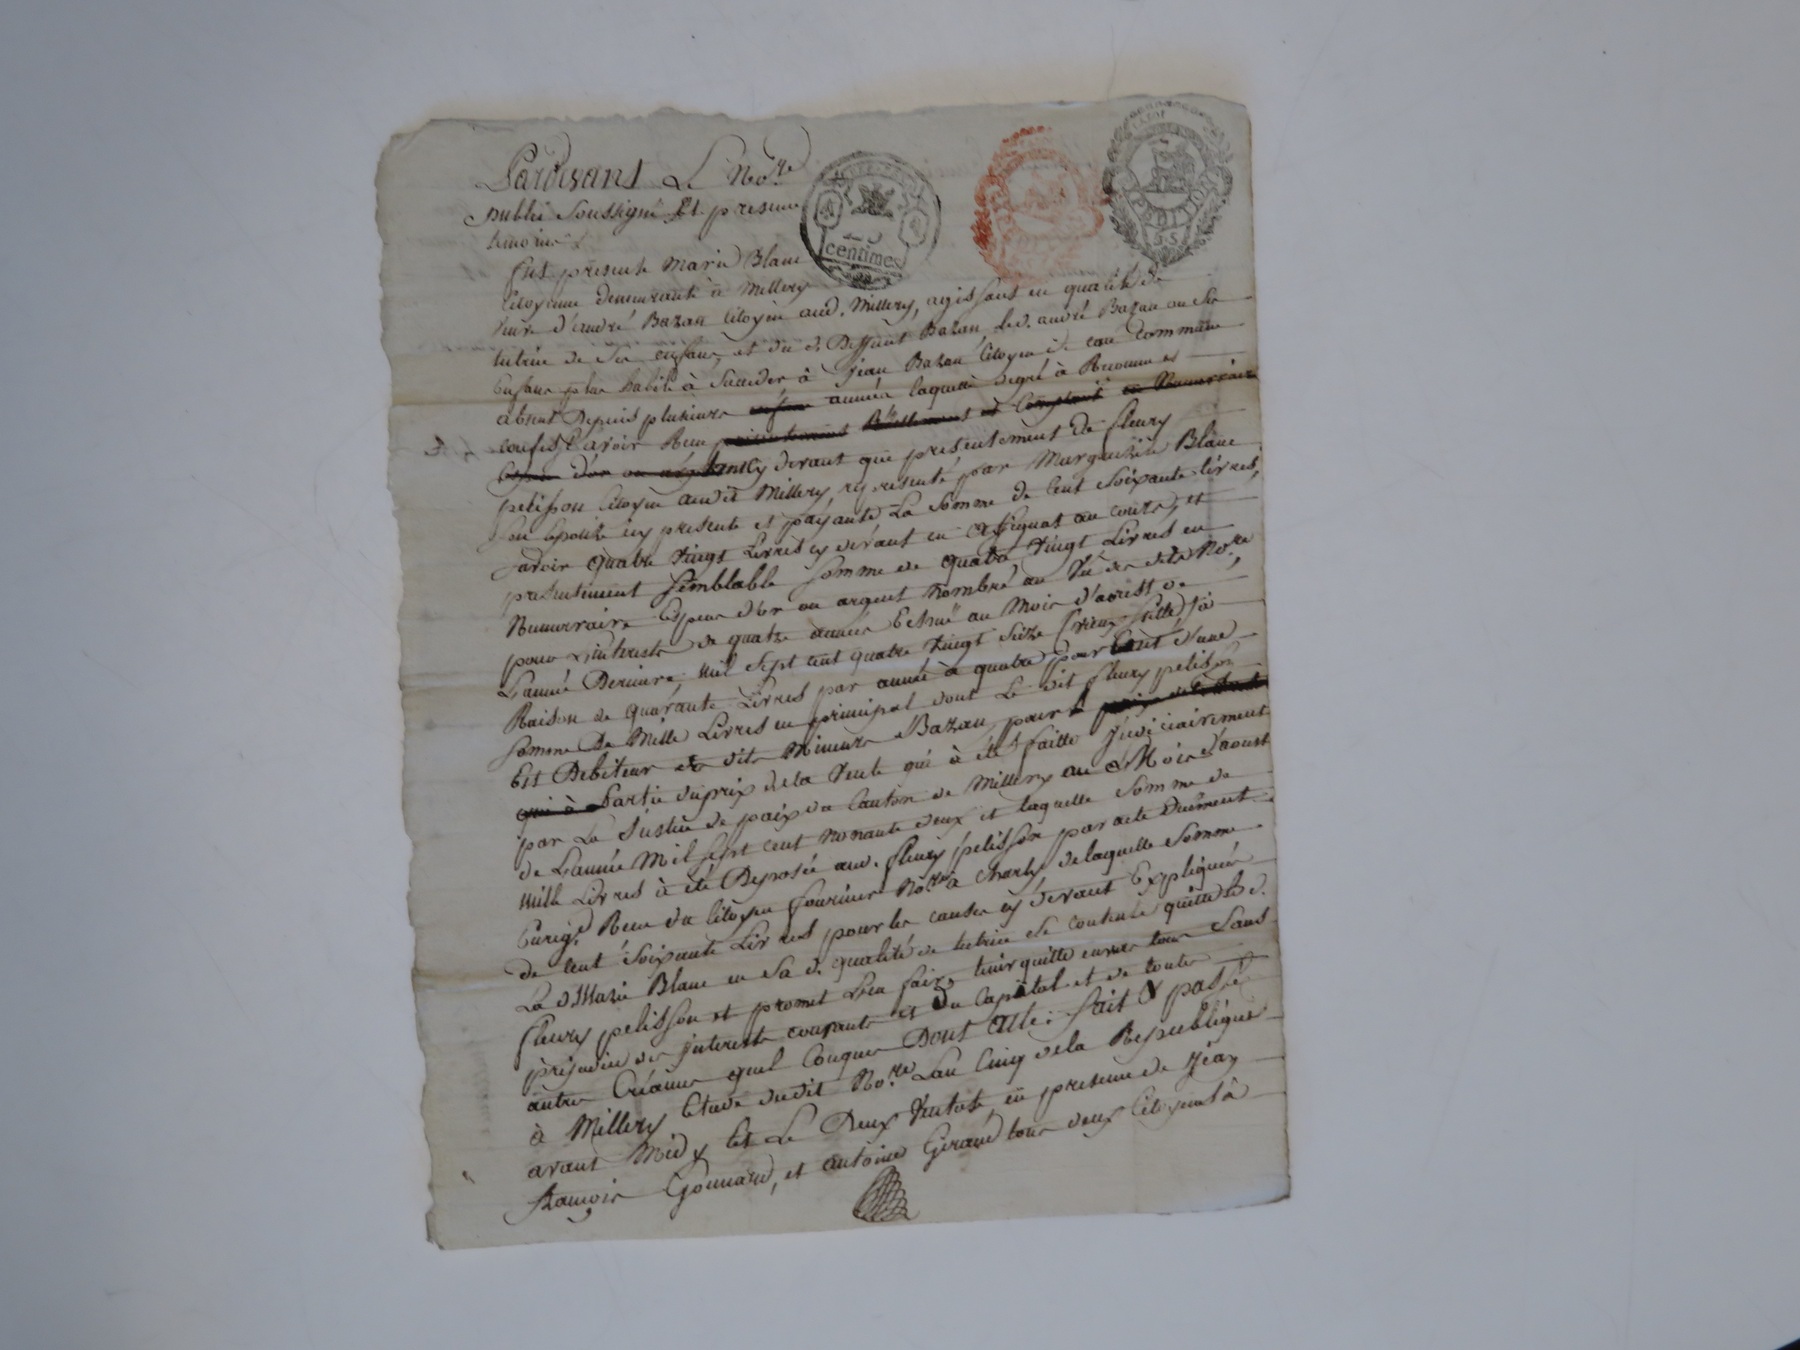 Pardevant Le No.re
public soussigné Et presence
temoins
fut presente Marie Blanc
Citoyenne demeurante à Millery
veuve d'andré Bazan Citoyen aud. Millery, agissant en qualité de
tutrice de ses enfans, et du d. Deffunt Bazan, led. andré Bazan ou ses
Enfans plus habile à succeder à jean Bazan Citoyen de cette commune
absent Depuis plusieurs années laquelle degré à Reconnu et
confessé avoir Reçu
cy devant que presentement de fleury
pelisson Citoyen audit Millery, representé par Marguerite Blanc
son Epouse icy presente et payante, La somme de Cent Soixante livres,
savoir quatre vingt Livres cy devant en assignat au cours, et
presentement semblable somme de quatre vingt Livres en
Numeraire Especes d'or ou argent Nombré au Vû des dits No.re
pour L'interest de quatre années Echuë au Mois d'aoust de
L'année Derniere mil Sept cent quatre Vingt seize (vieux stille) à
Raison de quarante Livres par année à quatre pour Cent d'une
somme De Mille Livres en principal dont Le dit fleury pelisson
Est Debiteur des dits Mineurs Bazan pour
Partie du prix de la Vente qui à été faitte Judiciairement
par La Justice de paix du Canton de Millery au Mois d'aoust
de L'année Mil sept cent nonante deux et laquelle somme de
mille Livres à été Deposée aud. fleury pelisson par acte Duement
Enregé Reçu du Citoyen fournier No.re à Charly de laquelle somme
de Cent soixante Livres pour les causes cy devant Expliquées
La d. Marie Blanc en sa d. qualité de tutrice se contente quitte le d.
fleury pelisson et promet L'en faire tenir quitte envers tous Sans
prejudice des interests courants et du Capital et de toutes
autres Créances quel Conques Dont Acte: fait & passé
à Millery Etude dudit No.re L'an Cinq de la Republique
avant Midy Et Le Deux Ventose, en presence de jean
françois Gonnard, et antoine Giraud tous deux Citoyens à
centimes